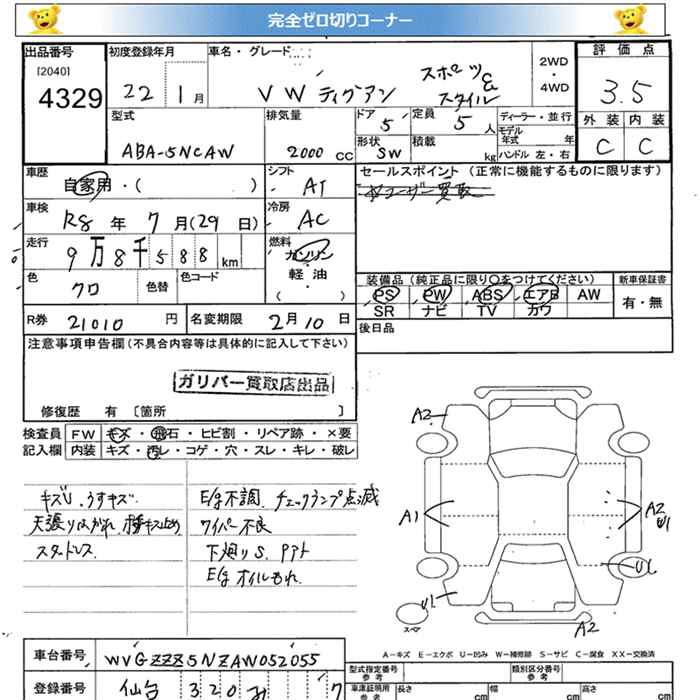 完全ゼロ切りコーナー
出品番号 初度登録年月 車名・グレード 2WD・4WD 評価点
[2040]
4329 22 1月 VW ティグアン スポーツ&スタイル 3.5
型式 排気量 ドア 5 定員 5人 ディーラー・並行 外装 内装
ABA-5NCAW 2000 cc 形状 SW 積載 kg モデル年式 年 C C
ハンドル 左・右
車歴 自家用・( ) シフト AT セールスポイント (正常に機能するものに限ります)
ユーザー買取
車検 R8年 7月(29日) 冷房 AC
走行 9万8千588km 燃料 ガソリン
軽・油
( )
色 クロ 色替 色コード 装備品 (純正品に限り○をつけてください) 新車保証書
PS PW ABS エアB AW 有・無
SR ナビ TV カワ
R券 21010円 名変期限 2月10日 後日品
注意事項申告欄(不具合内容等は具体的に記入して下さい)
ガリバー買取店出品
修復歴 有 〔箇所 〕
検査員 FW キズ・飛石・ヒビ割・リペア跡・×要
記入欄 内装 キズ・汚レ・コゲ・穴・スレ・キレ・破レ
キズU、うすキズ
天張りはがれ、
スタッドレス
E/g不調、チェックランプ点滅
ワイパー不良
下廻りS、PPト
E/gオイルもれ
A2
A1 A2 U1
U1
スペア
A2
A-キズ E-エクボ U-凹み W-補修跡 S-サビ C-腐食 XX-交換済
車台番号 WVGZZZ5NZAW052055 型式指定番号 参考 類別区分番号 参考
登録番号 仙台 320 7 車庫証明用 参考 長さ cm 幅 cm 高さ cm